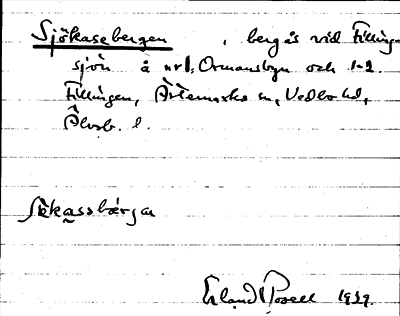 Sjökasebergen , bergås vid Filling-
sjön å nr 1, Ormansbyn och 1-2.
Fillingen, Ärtemarks sn, Vedbo hd,
Älvsb. l.
Sɩ̀kassbǽrjan
Erland Rosell 1939.